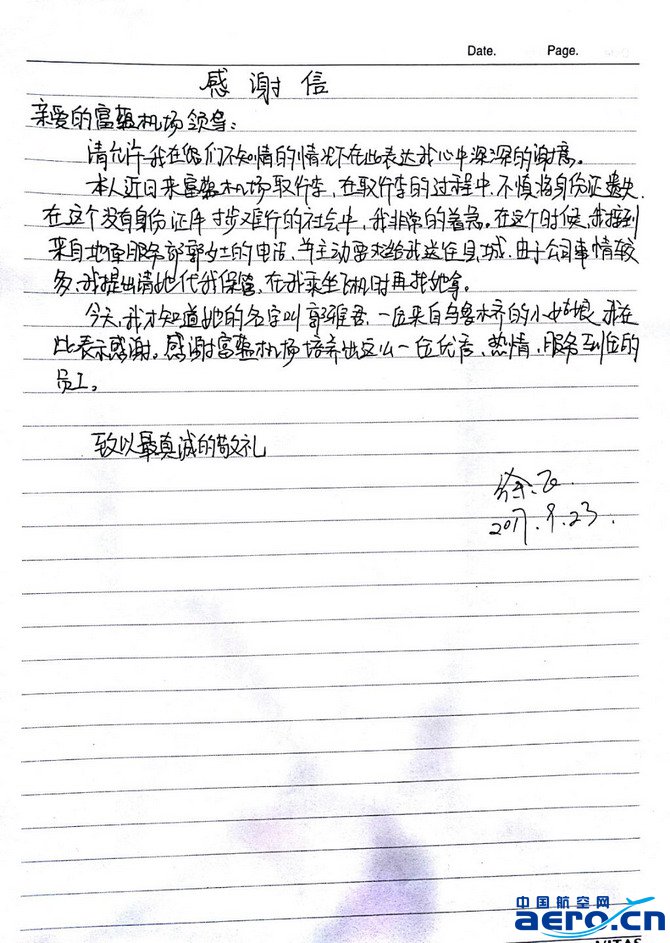 Date. Page.
感谢信
亲爱的富蕴机场领导：
请允许我在你们不知情的情况下在此表达我心中深深的谢意。
本人近日来富蕴机场取行李，在取行李的过程中，不慎将身份证遗失
在这个没有身份证件寸步难行的社会中，我非常的着急。在这个时候，我接到
来自地面服务部郭女士的电话，并主动要求给我送往县城，由于公司事情较
多，我提出请她代我保管，在我乘坐飞机时再找她拿。
今天，我才知道她的名字叫郭雅君，一位来自乌鲁木齐的小姑娘，我在
此表示感谢。感谢富蕴机场培养出这么一位优秀，热情，服务到位的
员工。
致以最真诚的敬礼
徐飞
2017.9.23.
中国航空网
aero.cn